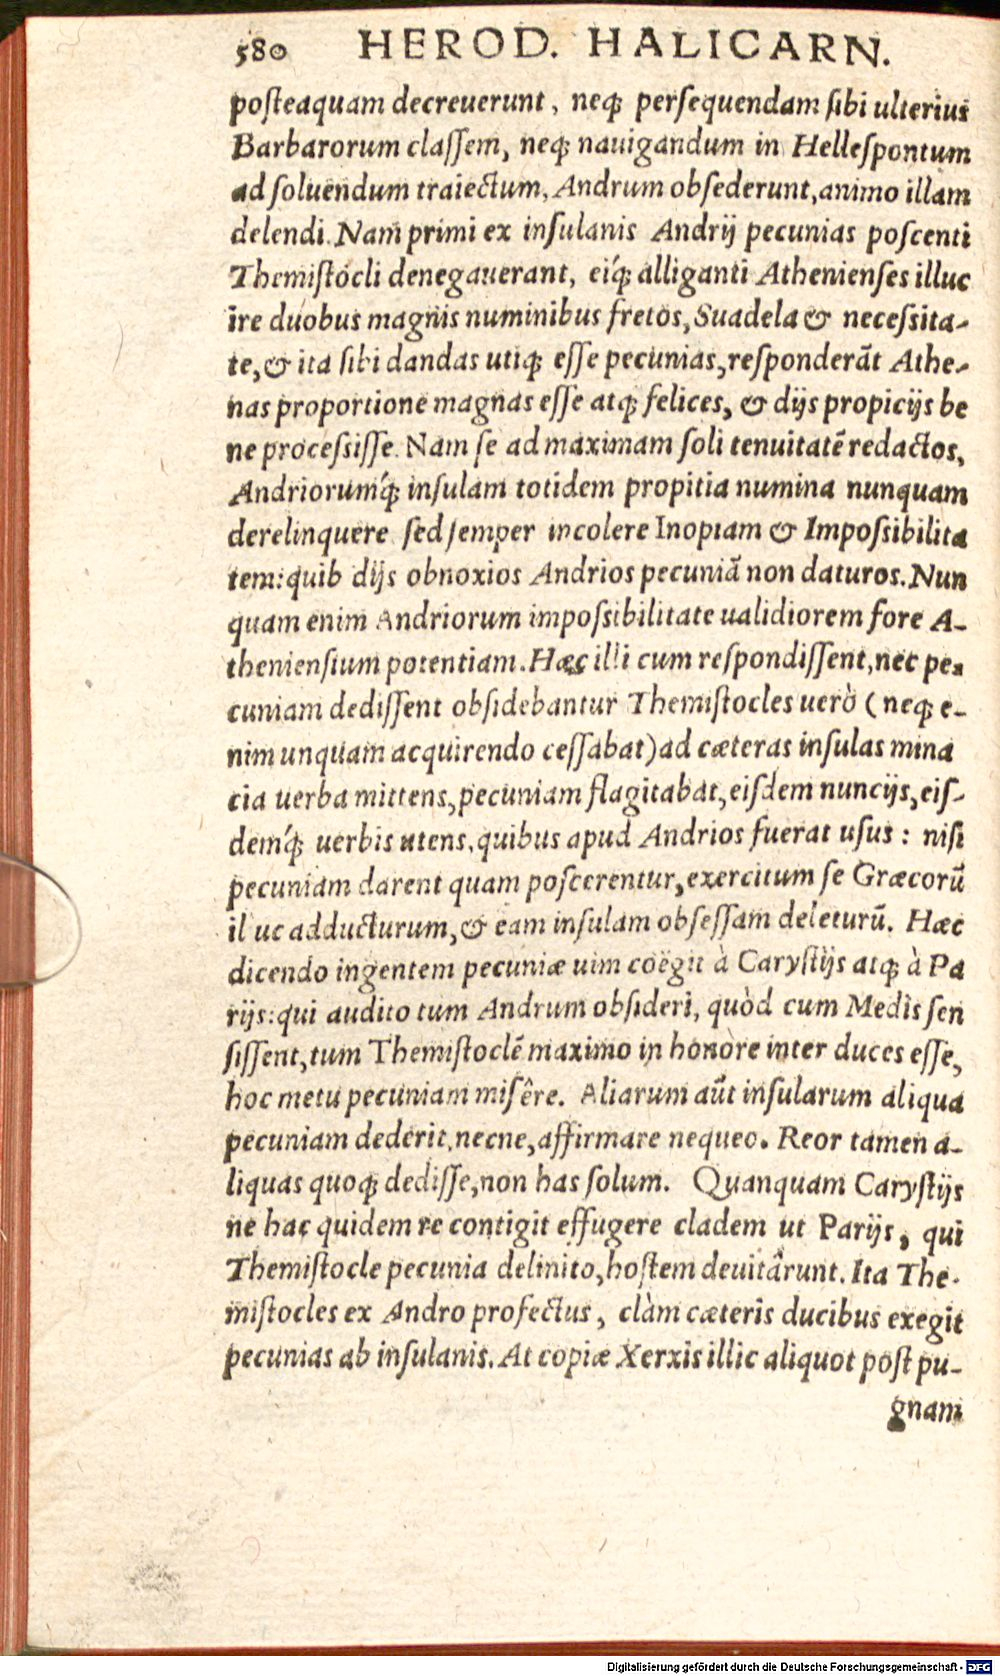 580 HEROD. HALICARN.
poſteaquam decreuerunt, neq; perſequendam ſibi ulterius
Barbarorum claſſem, neq; nauigandum in Helleſpontum
ad ſoluendum traiectum, Andrum obſederunt, animo illam
delendi. Nam primi ex inſulanis Andrij pecunias poſcenti
Themiſtocli denegauerant, eiq́; alliganti Athenienſes illuc
ire duobus magnis numinibus fretos, Suadela & neceſsita-
te, & ita ſibi dandas utiq; eſſe pecunias, reſponderãt Athe-
nas proportione magnas eſſe atq; felices, & dijs propicijs be
ne proceſsiſſe. Nam ſe ad maximam ſoli tenuitatẽ redactos,
Andriorumq́; inſulam totidem propitia numina nunquam
derelinquere ſed ſemper incolere Inopiam & Impoſsibilita
tem: quib dijs obnoxios Andrios pecuniã non daturos. Nun
quam enim Andriorum impoſsibilitate ualidiorem fore A-
thenienſium potentiam. Hæc illi cum reſpondiſſent, nec pe-
cuniam dediſſent obſidebantur Themiſtocles uerò (neq; e-
nim unquam acquirendo ceſſabat) ad cæteras inſulas mina
cia uerba mittens, pecuniam flagitabat, eiſdem nuncijs, eiſ-
demq́; uerbis utens, quibus apud Andrios fuerat uſus: niſi
pecuniam darent quam poſcerentur, exercitum ſe Græcorũ
il uc adducturum, & eam inſulam obſeſſam deleturũ. Hæc
dicendo ingentem pecuniæ uim coëgit à Caryſtijs atq; à Pa
rijs: qui audito tum Andrum obſideri, quòd cum Medis ſen
ſiſſent, tum Themiſtoclẽ maximo in honore inter duces eſſe,
hoc metu pecuniam miſêre. Aliarum aũt inſularum aliqua
pecuniam dederit, necne, affirmare nequeo. Reor tamen a-
liquas quoq; dediſſe, non has ſolum. Quanquam Caryſtijs
ne hac quidem re contigit effugere cladem ut Parijs, qui
Themiſtocle pecunia delinito, hoſtem deuitârunt. Ita The-
miſtocles ex Andro profectus, clàm cæteris ducibus exegit
pecunias ab inſulanis. At copiæ Xerxis illic aliquot poſt pu-
gnam
Digitalisierung gefördert durch die Deutsche Forschungsgemeinschaft - DFG